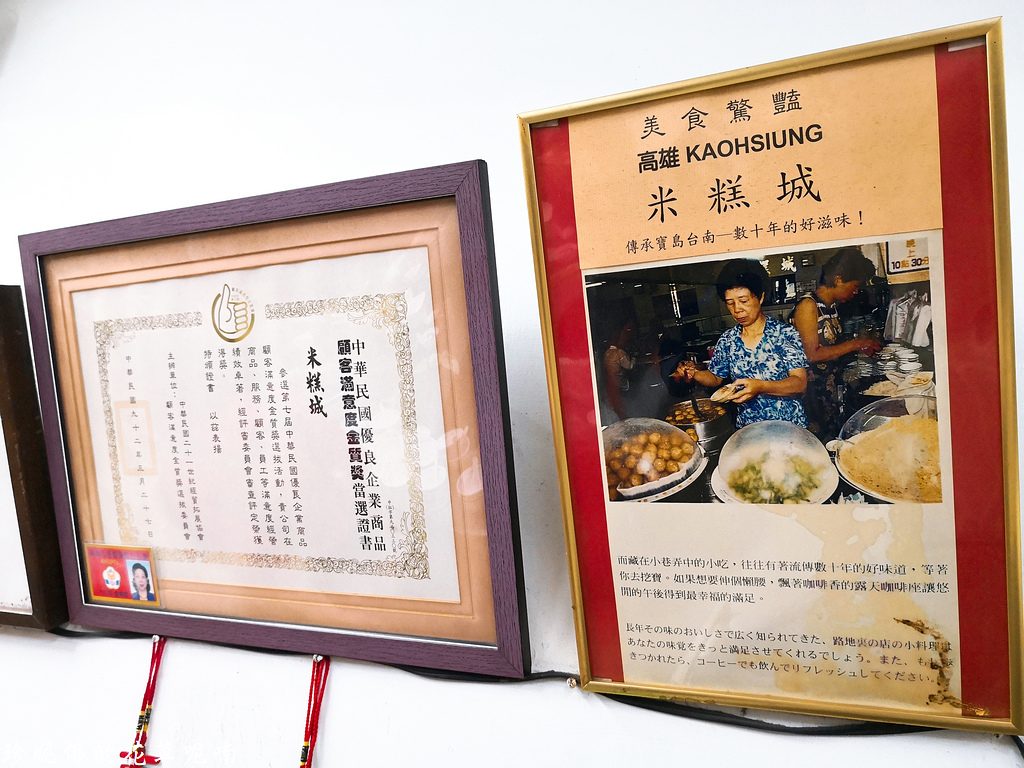 中華民國優良企業商品
顧客滿意度金質獎當選證書
米糕城
參選第七屆中華民國優良企業商品
顧客滿意度金質獎選拔活動，貴公司在
商品、服務、顧客、員工等滿意度經營
績效卓著，經評審委員會審查評定榮獲
得獎。
特頒證書　以茲表揚
中華民國二十一世紀經貿拓展協會
主辦單位：顧客滿意度金質獎選拔委員會
中華民國九十二年三月二十七日
美食驚豔
高雄 KAOHSIUNG
米糕城
傳承寶島台南—數十年的好滋味！
城
晚上
10點30分
而藏在小巷弄中的小吃，往往有著流傳數十年的好味道，等著
你去挖寶。如果想要伸個懶腰，飄著咖啡香的露天咖啡座讓悠
閒的午後得到最幸福的滿足。
長年その味のおいしさで広く知られてきた、路地裏の店の小料理は
あなたの味覚をきっと満足させてくれるでしょう。また、もし
きつかれたら、コーヒーでも飲んでリフレッシュしてください。